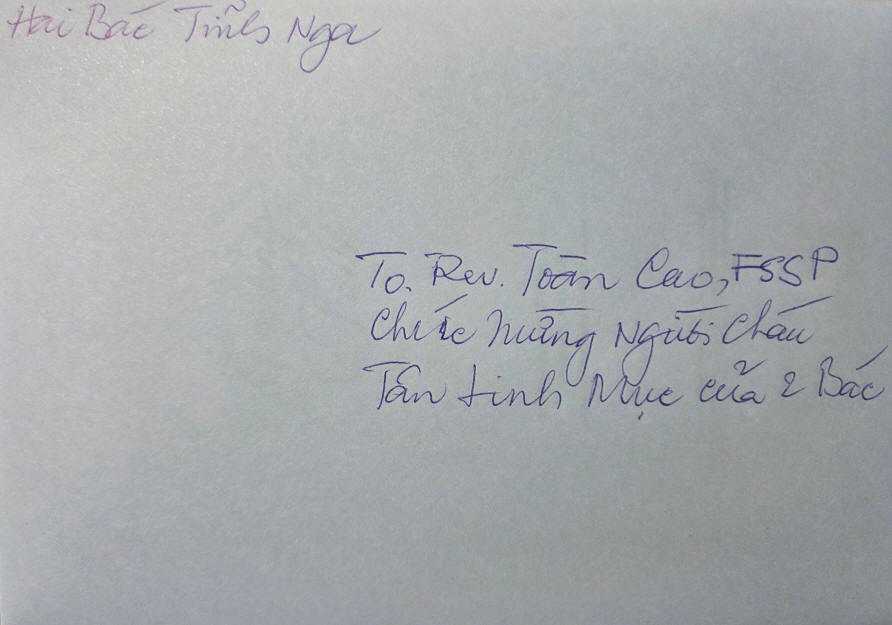 Hai Bác Tĩnh Nga
To. Rev. Toàn Cao, FSSP
Chúc Mừng Người Cháu
Tân Linh Mục của 2 Bác